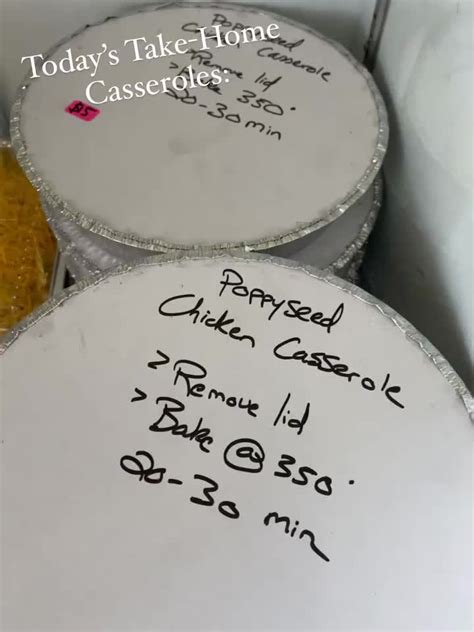 Today's Take-Home
Casseroles:
Poppyseed
Chicken Casserole
> Remove lid
> Bake 350°
20-30 min
$5
Poppyseed
Chicken Casserole
> Remove lid
> Bake @ 350°
20-30 min